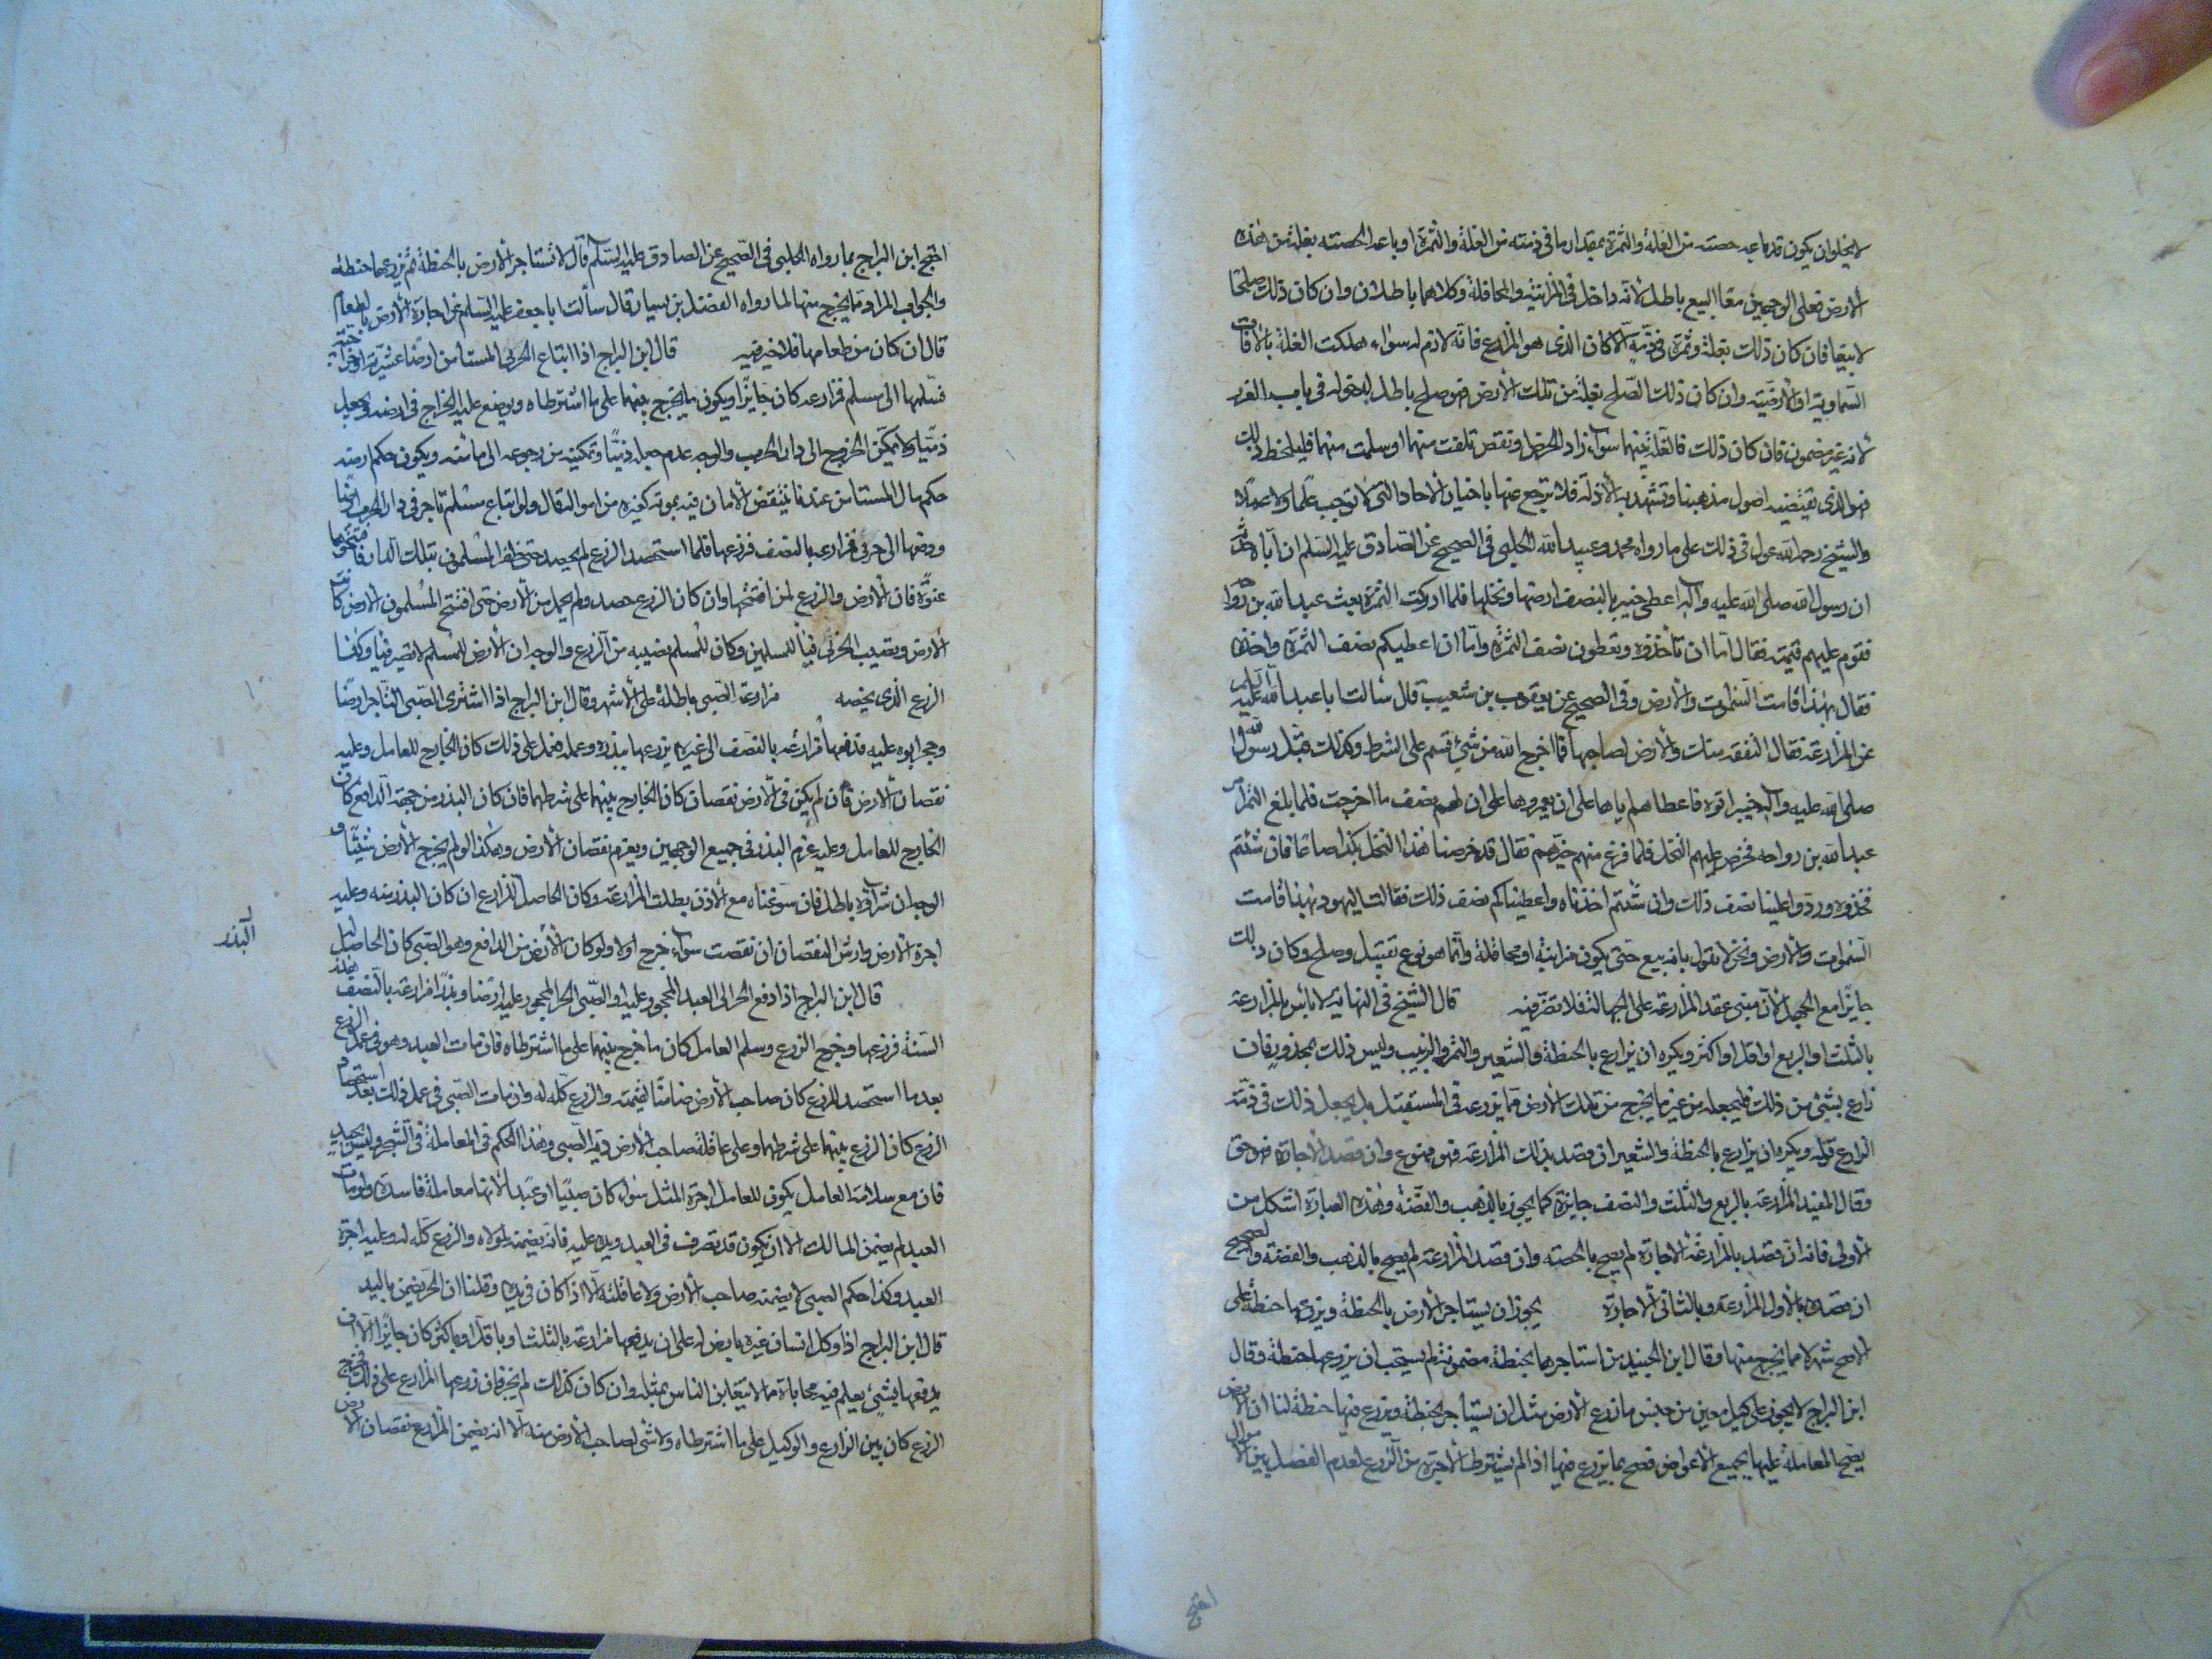 لا يخلو ان يكون قد باعه حصته من الغلة والثمرة بمقدار ما فى ذمته من الغلة والثمرة او باعه الحصته بغلة من هذه
الارض فعلى الوجهين معا البيع باطل لانه داخل فى المزابنة والمحاقلة وكلاهما باطلان وان كان ذلك صلحا
لا بيعا فان كان ذلك بغلة وثمرة فى ذمة الاكار الذى هو المزارع فانه لازم له سواء هلكت الغلة بالافات
السماوية او الارضية وان كان ذلك الصلح بغلة من تلك الارض فهو صلح باطل لدخوله فى باب الغرر
لانه غير مضمون فان كان ذلك فالغلة بينهما سواء زاد الخرص او نقص تلفت منهما او سلمت منهما فليلحظ ذلك
فهو الذى تقتضيه اصول مذهبنا وتشهد به الادلة فلا نرجع عنها باخبار الاحاد التى لا توجب علما ولا عملا
والشيخ رحمه الله عول فى ذلك على ما رواه محمد وعبيد الله الحلبى فى الصحيح عن الصادق عليه السلم ان اباه حدثه
ان رسول الله صلى الله عليه وآله اعطى خيبر بالنصف ارضها ونخلها فلما ادركت الثمرة بعث عبد الله بن رواحه
فقوم عليهم قيمة فقال اما ان تأخذوه وتعطون نصف الثمرة واما ان اعطيكم نصف الثمرة واخذه
فقال بهذا قامت السموات والارض وفى الصحيح عن يعقوب بن شعيب قال سالت ابا عبد الله عليه السلم
عن المزارعة فقال النفقه منك والارض لصاحبها فما اخرج الله من شئ قسم على الشرط وكذلك قبل رسول الله
صلى الله عليه وآله خيبر اتوه فاعطاهم اياها على ان يعمروها على ان لهم نصف ما اخرجت فلما بلغ الثمر امر
عبد الله بن رواحه فخرص عليهم النخل فلما فرغ منهم خيرهم فقال قد خرصنا هذا النخل بكذا صاعا فان شئتم
فخذوه وردوا علينا نصف ذلك وان شئتم اخذناه واعطيناكم نصف ذلك فقالت اليهود بهذا قامت
السموات والارض ونحن لا نقول بانه بيع حتى يكون مزابنة او محاقلة وانما هو نوع تقبيل وصلح وكان ذلك
جايزا مع الجهل لان مبنى عقد المزارعة على الجهالة فلا تضر فيه قال الشيخ فى النهاية لا بأس بالمزارعة
بالثلث او الربع او اقل او اكثر ويكره ان يزارع بالحنطة والشعير والتمر والزبيب وليس ذلك بمحذور فان
زارع بشئ من ذلك فليجعله من غير ما يخرج من تلك الارض مما يزرعه فى المستقبل بل يجعل ذلك فى ذمة
الزارع قوله ويكره ان يزارع بالحنطة والشعير ان قصد بذلك المزارعة فهو ممنوع وان قصد الاجارة فهو حق
وقال المفيد المزارعة بالربع والثلث والنصف جايزة كما يجوز بالذهب والفضة وهذه العبارة اشكل من
الاولى فانه ان قصد بالمزارعة الاجارة لم يصح بالحصه وان قصد المزارعة لم يصح بالذهب والفضة والصحيح
ان قصده بالاول المزارعة وبالثانى الاجارة يجوز ان يستاجر الارض بالحنطة ويزرعها حنطة على
الاصح شهر لا مما يخرج منها وقال ابن الجنيد من استاجرها بحنطة مضمونة لم يستحب ان يزرعها حنطة وقال
ابن البراج لا يجوز على كيل معين من جنس ما زرع الارض مثل ان يستأجر بحنطة ويزرع فيها حنطة لنا ان الارض
يصح المعاملة عليها بجميع الاعواض فصح بما يزرع فيها اذا لم يشترط الاجرة من الزرع لعدم الفصل بين الاموال
احتج
احتج ابن البراج بما رواه الحلبى فى الصحيح عن الصادق عليه السلم قال لا تستاجر الارض بالحنطة ثم يزرعها حنطة
والجواب المراد مما يخرج منها لما رواه الفضيل بن يسار قال سألت ابا جعفر عليه السلم عن اجارة الارض بالطعام
قال ان كان من طعامها فلا خير فيه قال ابن البراج اذا ابتاع الحربى المستامن ارضا عشرية او خراجية
فسلمها الى مسلم مزارعة كان جايزا ويكون ما يخرج بينهما على ما اشترطاه ويوضع عليه الخراج فى ارضه ويجعل
ذميا ولا يمكن الخروج الى دار الحرب والوجه عدم جعله ذميا وتمكينه من رجوعه الى مأمنه ويكون حكم ارضه
حكم مال المستامن عندنا ينتقض الامان فيه بموته كغيره من امواله قال ولو ابتاع مسلم تاجر فى دار الحرب ارضا
ودفعها الى حربى مزارعة بالنصف فزرعها فلما استحصد الزرع لم يحصد حتى ظفر المسلمون بتلك الدار فافتتحوها
عنوة فان الارض والزرع لمن افتتحها وان كان الزرع حصد ولم يحمل من الارض حتى افتتح المسلمون الارض كانت
الارض ونصيب الحربى فيأ للمسلمين وكان للمسلم نصيبه من الزرع والوجه ان الارض للمسلم لا تصير فيأ وكذا
الزرع الذى يخصه مزارعة الصبى باطلة على الاشهر وقال ابن البراج اذا اشترى الصبى التاجر ارضا
وحجر ابوه عليه فدفعها مزارعة بالنصف الى غيره يزرعها ببذره وعمله فعمل على ذلك كان الخارج للعامل وعليه
نقصان الارض فان لم يكن فى الارض نقصان كان الخارج بينهما على شرطهما فان كان البذر من جهة الدافع كان
الخارج للعامل وعليه غرم البذر فى جميع الوجهين ويغرم نقصان الارض وهكذا لو لم يخرج الارض شيئا و
الوجه ان شراؤه باطل فان سوغناه مع الاذن بطلت المزارعة وكان الحاصل للزارع ان كان البذر منه وعليه
اجرة الارض وارش النقصان ان نقصت سواء خرج اولا ولو كان الارض من الدافع وهو الصبى كان الحاصل له
البذر
قال ابن البراج اذا دفع الحر الى العبد المحجور عليه او الصبى الحر المحجور عليه ارضا وبذرا مزارعة بالنصف هذه
السنة فزرعها وخرج الزرع وسلم العامل كان ما خرج بينهما على ما اشترطاه فان مات العبد وهو فى عمل الزرع
بعد ما استحصد الزرع كان صاحب الارض ضامنا لقيمته والزرع كله له وان مات الصبى فى عمل ذلك بعد استحصام
الزرع كان الزرع بينهما على شرطهما وعلى عاقلة صاحب الارض دية الصبى وهذا الحكم فى المعاملة فى الشجر وليس بجيد
فان مع سلامة العامل يكون للعامل اجرة المثل سواء كان صبيا او عبدا لانها معاملة فاسدة ولو مات
العبد لم يضمن المالك الا ان يكون قد تصرف فى العبد ويده عليه فانه يضمنه لمولاه والزرع كله له وعليه اجرة
العبد وكذا حكم الصبى لا يضمنه صاحب الارض ولا عاقلته الا اذا كان فى يده وقلنا ان الحر يضمن باليد
قال ابن البراج اذا وكل انسان غيره بارض له على ان يدفعها مزارعة بالثلث او باقل او باكثر كان جايزا الا ان
يدفعها بشئ يعلم فيه محاباة ما لا يتغابن الناس بمثله وان كان كذلك لم يجز فان زرعها المزارع على ذلك فخرج
الزرع كان بين الزارع والوكيل على ما اشترطاه ولا شى لصاحب الارض منه الا انه يضمن المزارع نقصان الارض